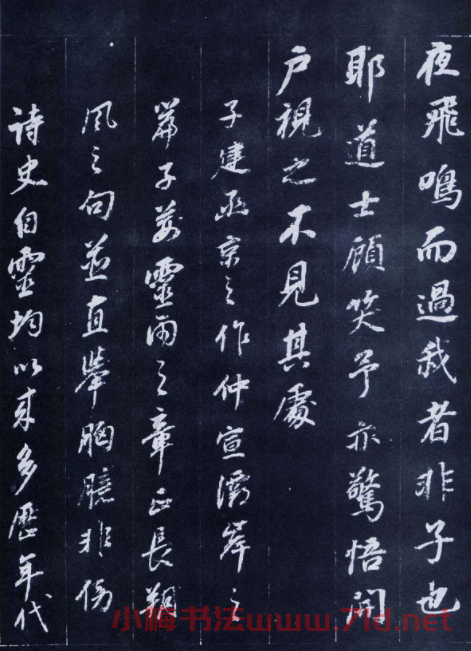 夜飛鳴而過我者非子也
耶道士顧笑予亦驚悟開
户視之不見其處
子建函京之作仲宣灞岸之
篇子荆零雨之章正長朔
風之句並直舉胸臆非傍
詩史自靈均以來多歷年代
小梅书法www.71d.net